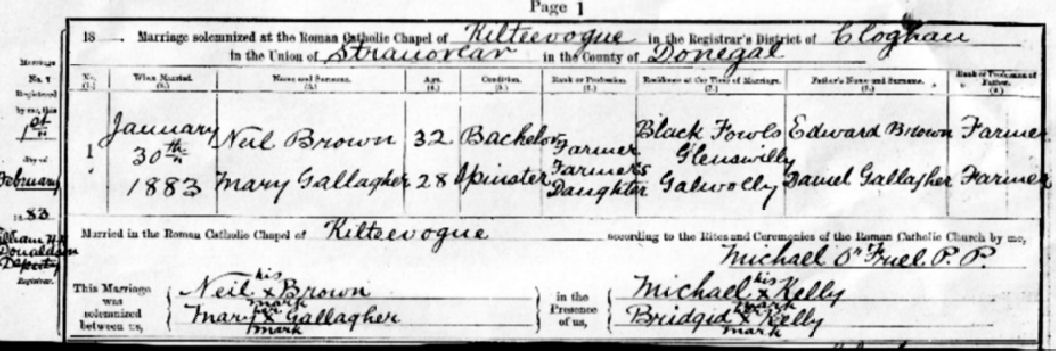 Page 1
18 — . Marriage solemnized at the Roman Catholic Chapel of Kilteevogue in the Registrar's District of Cloghan
in the Union of Stranorlar in the County of Donegal
Marriage
No. 1
Registered
by me, this
1st
day of
February
1883
Deputy
Registrar.
No. (1.) When Married. (2.) Name and Surname. (3.) Age. (4.) Condition. (5.) Rank or Profession. (6.) Residence at the Time of Marriage. (7.) Father's Name and Surname. (8.) Rank or Profession of Father.
1 January 30th 1883
Neil Brown 32 Bachelor Farmer Black Fowls Glenswilly Edward Brown Farmer
Mary Gallagher 28 Spinster Farmer's Daughter Galwolly Daniel Gallagher Farmer
Married in the Roman Catholic Chapel of Kilteevogue according to the Rites and Ceremonies of the Roman Catholic Church by me,
Michael O'Friel. P. P.
This Marriage was solemnized between us,
Neil his x mark Brown
Mary her x mark Gallagher
in the Presence of us,
Michael his x mark Kelly
Bridgid her x mark Kelly